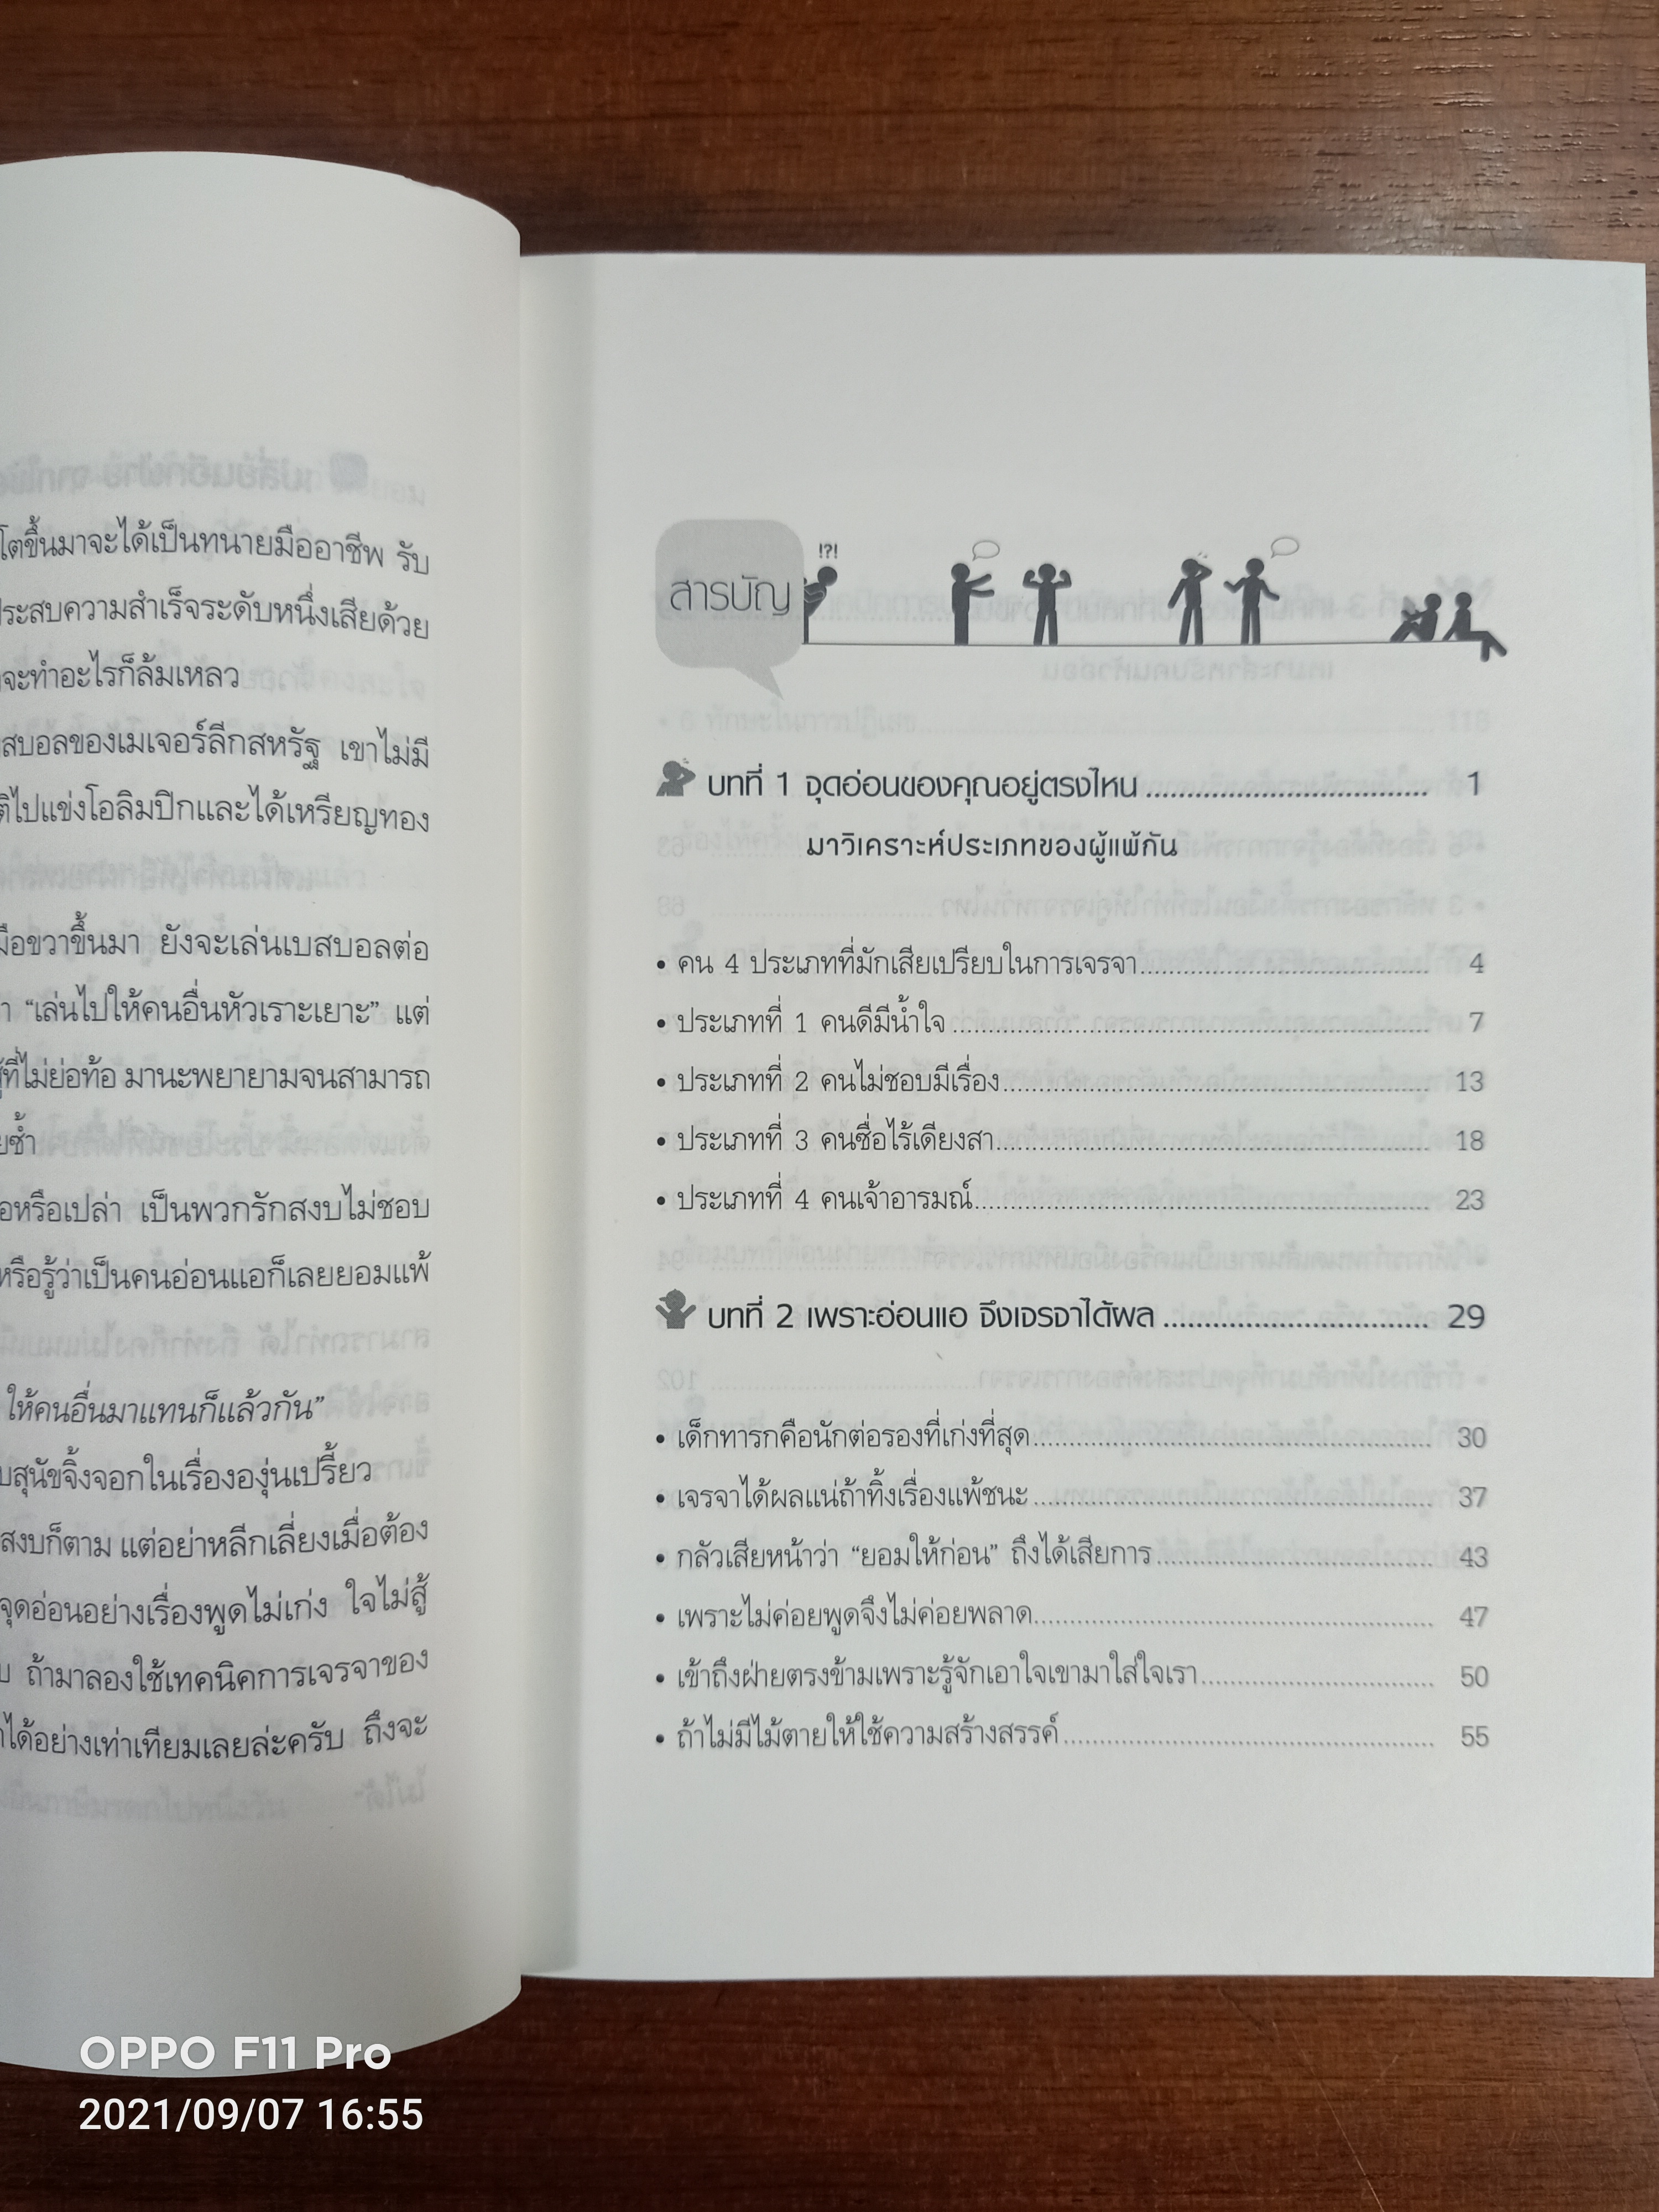 โตขึ้นมาจะได้เป็นทนายมืออาชีพ รับ
ประสบความสำเร็จระดับหนึ่งเสียด้วย
จะทำอะไรก็ล้มเหลว
สบอลของเมเจอร์ลีกสหรัฐ เขาไม่มี
ติไปแข่งโอลิมปิกและได้เหรียญทอง
มือขวาขึ้นมา ยังจะเล่นเบสบอลต่อ
“เล่นไปให้คนอื่นหัวเราะเยาะ” แต่
ที่ไม่ย่อท้อ มานะพยายามจนสามารถ
ยซ้ำ
อหรือเปล่า เป็นพวกรักสงบไม่ชอบ
หรือรู้ว่าเป็นคนอ่อนแอก็เลยยอมแพ้
ให้คนอื่นมาแทนก็แล้วกัน”
บสุนัขจิ้งจอกในเรื่ององุ่นเปรี้ยว
สงบก็ตาม แต่อย่าหลีกเลี่ยงเมื่อต้อง
จุดอ่อนอย่างเรื่องพูดไม่เก่ง ใจไม่สู้
บ ถ้ามาลองใช้เทคนิคการเจรจาของ
ได้อย่างเท่าเทียมเลยล่ะครับ ถึงจะ
สารบัญ
!?!
บทที่ 1 จุดอ่อนของคุณอยู่ตรงไหน................................... 1
มาวิเคราะห์ประเภทของผู้แพ้กัน
• คน 4 ประเภทที่มักเสียเปรียบในการเจรจา................................... 4
• ประเภทที่ 1 คนดีมีน้ำใจ................................... 7
• ประเภทที่ 2 คนไม่ชอบมีเรื่อง................................... 13
• ประเภทที่ 3 คนซื่อไร้เดียงสา................................... 18
• ประเภทที่ 4 คนเจ้าอารมณ์................................... 23
บทที่ 2 เพราะอ่อนแอ จึงเจรจาได้ผล................................... 29
• เด็กทารกคือนักต่อรองที่เก่งที่สุด................................... 30
• เจรจาได้ผลแน่ถ้าทิ้งเรื่องแพ้ชนะ................................... 37
• กลัวเสียหน้าว่า “ยอมให้ก่อน” ถึงได้เสียการ................................... 43
• เพราะไม่ค่อยพูดจึงไม่ค่อยพลาด................................... 47
• เข้าถึงฝ่ายตรงข้ามเพราะรู้จักเอาใจเขามาใส่ใจเรา................................... 50
• ถ้าไม่มีไม้ตายให้ใช้ความสร้างสรรค์................................... 55
OPPO F11 Pro
2021/09/07 16:55